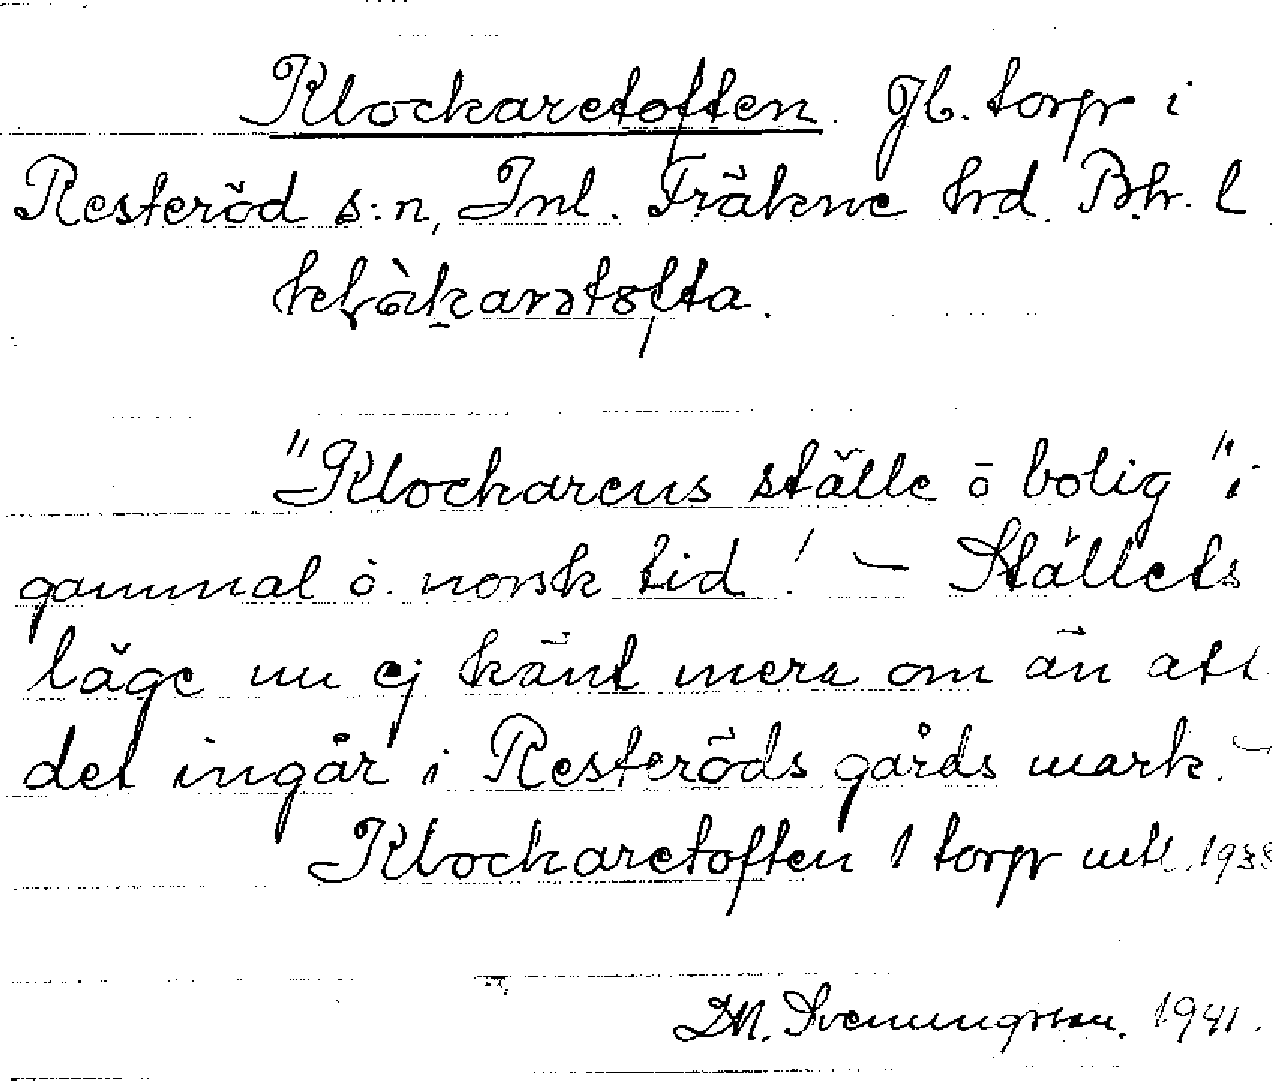 Klockaretoften. Gl. torp i
Resteröd s:n, Inl. Fräkne hrd. Bhr. l
"Klockarens ställe ō bolig" i
gammal ò. norsk tid! — Ställets
läge nu ej känt mera om än att
det ingår i Resteröds gårds mark. —
Klockaretoften 1 torp utl. 1938
D.N. Svenungsson. 1941.